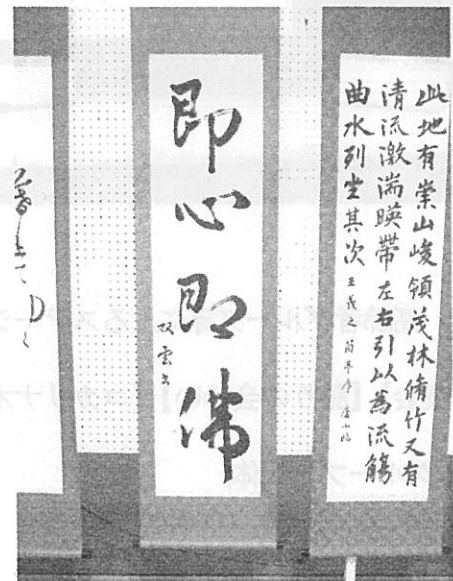 此地有崇山峻領茂林脩竹又有
清流激湍暎帶左右引以為流觴
曲水列坐其次 王羲之 蘭亭序
即心即佛